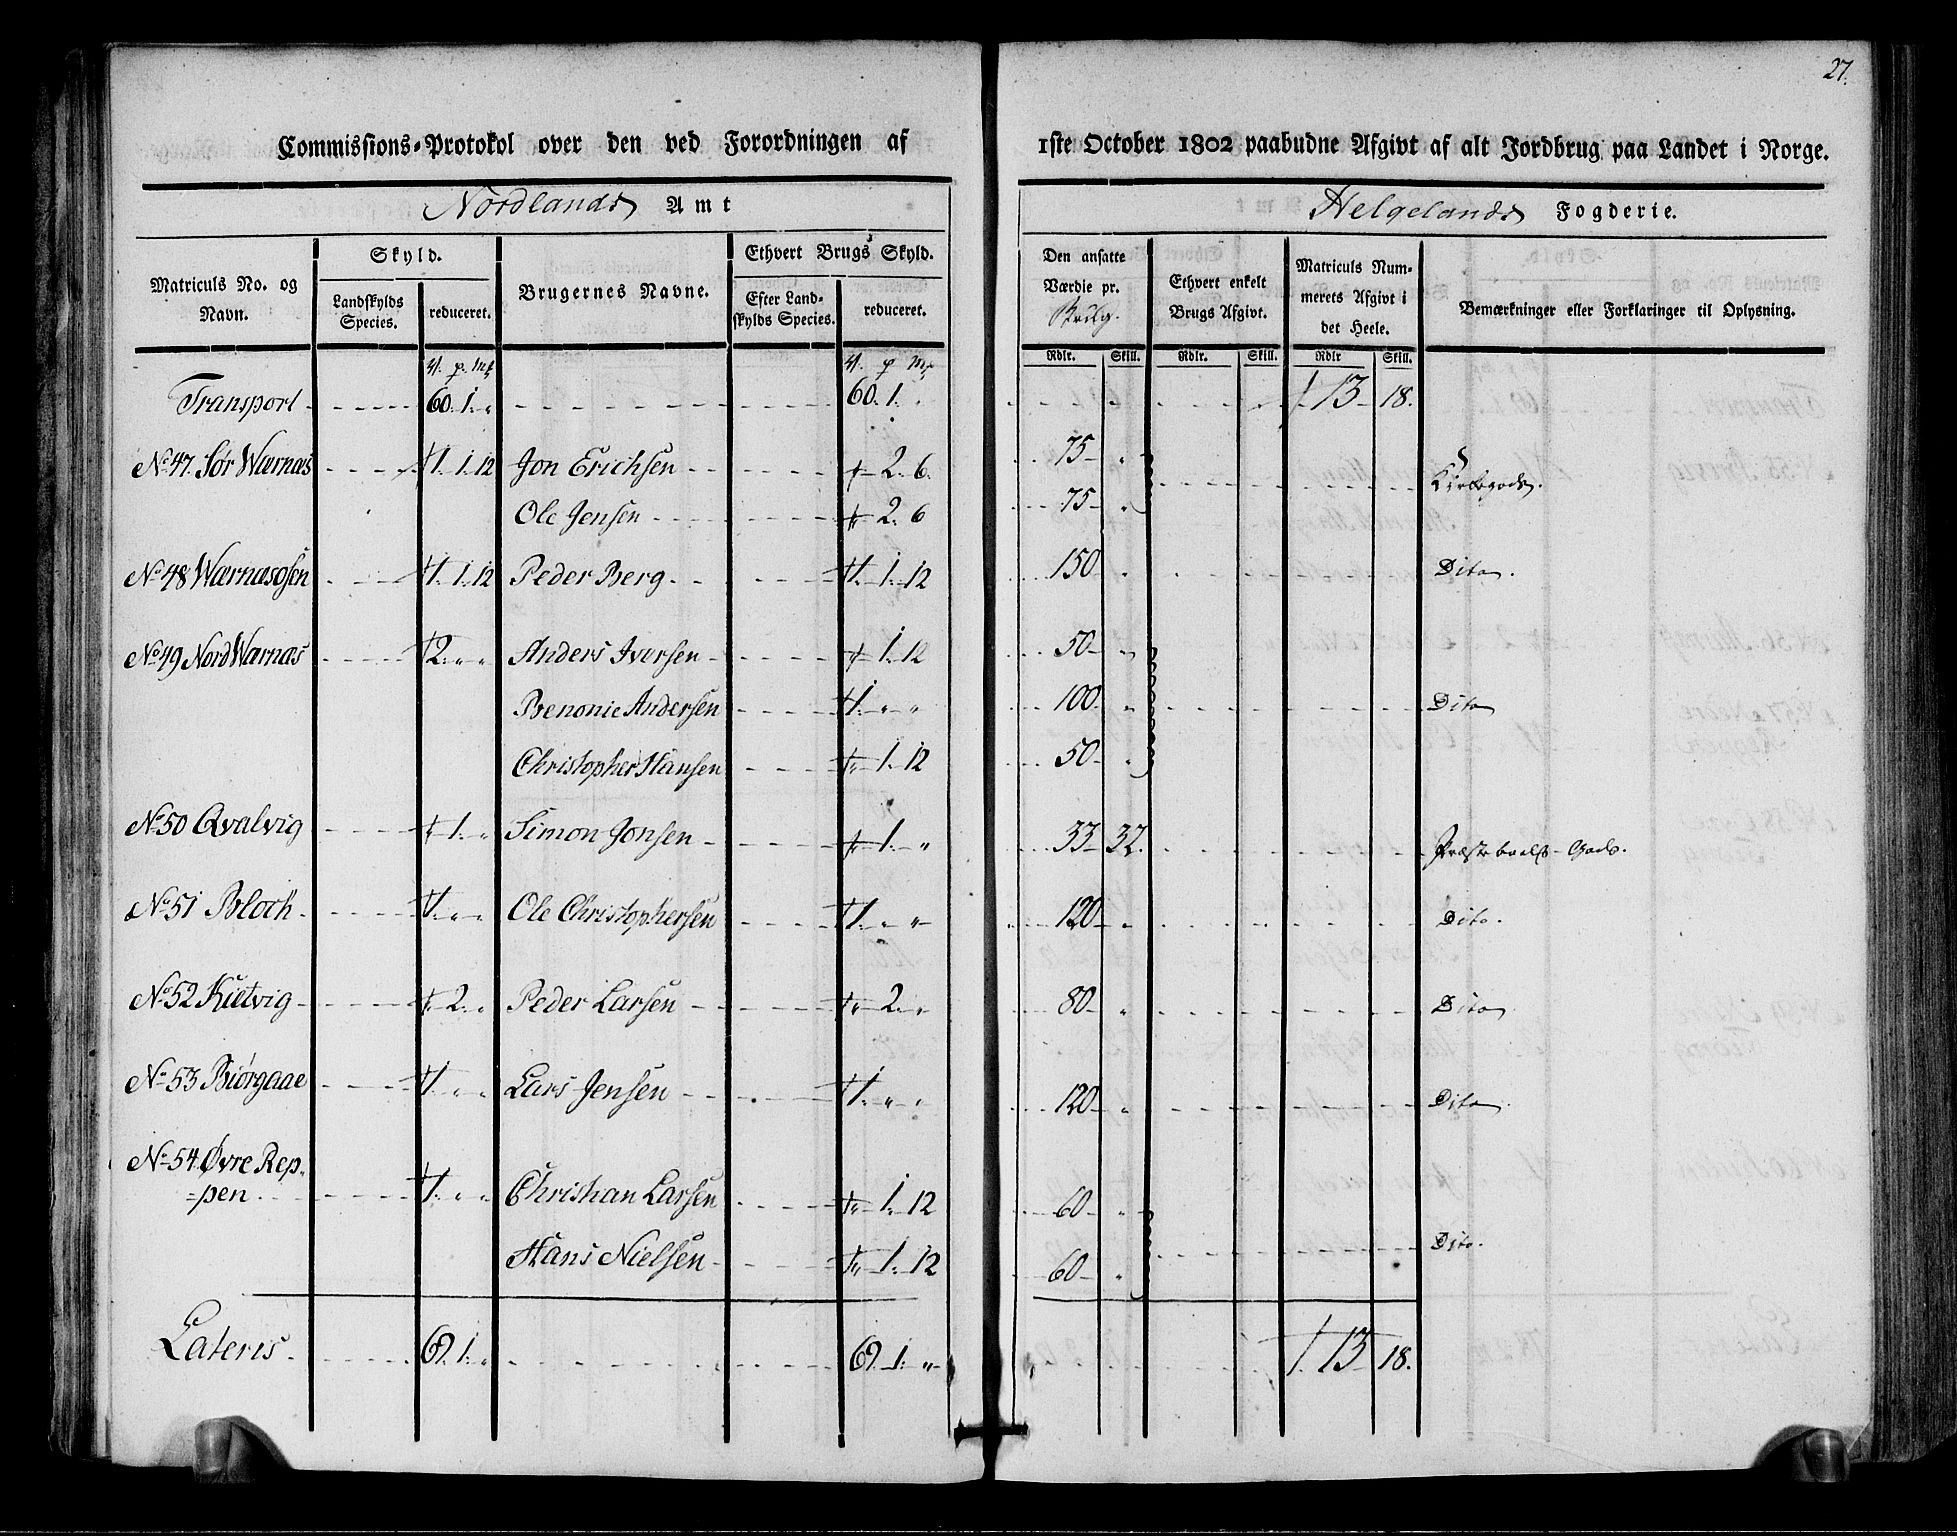 27.
Commissions-Protokol over den ved Forordningen af 1ste October 1802 paabudne Afgivt af alt Jordbrug paa Landet i Norge.
Nordlands Amt Helgelands Fogderie.
Matriculs No. og Navn. Skyld. Landskylds Species. reduceret. Brugernes Navne. Ethvert Brugs Skyld. Efter Landskylds Species. reduceret. Den ansatte Værdie pr. Brug. Ethvert enkelt Brugs Afgivt. Matriculs Nummerets Afgivt i det Heele. Bemærkninger eller Forklaringer til Oplysning.
Rdlr. Skill. Rdlr. Skill. Rdlr Skill.
Transport 60. 1. " 60. 1. 113 18.
No 47. Sør Wærnæs 1. 1. 12 Jon Erichsen " 2. 6. 75 " Kirkegods.
Ole Jensen " 2. 6 75 "
No 48 Wærnæsosen 1. 1. 12 Peder Berg 1. 1. 12 150 " Dito.
No 49 Nord Wærnæs 2. " " Anders Iversen " 1. 12 50 "
Benonie Andersen 1. " " 100 " Dito
Christopher Hansen " 1. 12 50 "
No 50 Qvalvig " 1. " Simon Jonsen " 1. " 33 32. Præsteboels-Gods.
No 51 Bloch 1. " " Ole Christophersen 1. " " 120 " Dito.
No 52 Kietvig " 2. " Peder Larsen " 2. " 80 " Dito
No 53 Biørgaae 1. " " Lars Jensen 1. " " 120 " Dito
No 54 Øvre Rep-
=pen 1. " " Christian Larsen " 1. 12 60 "
Hans Nielsen " 1. 12 60 " Dito.
Lateris 69. 1. " 69. 1. " 113 18.